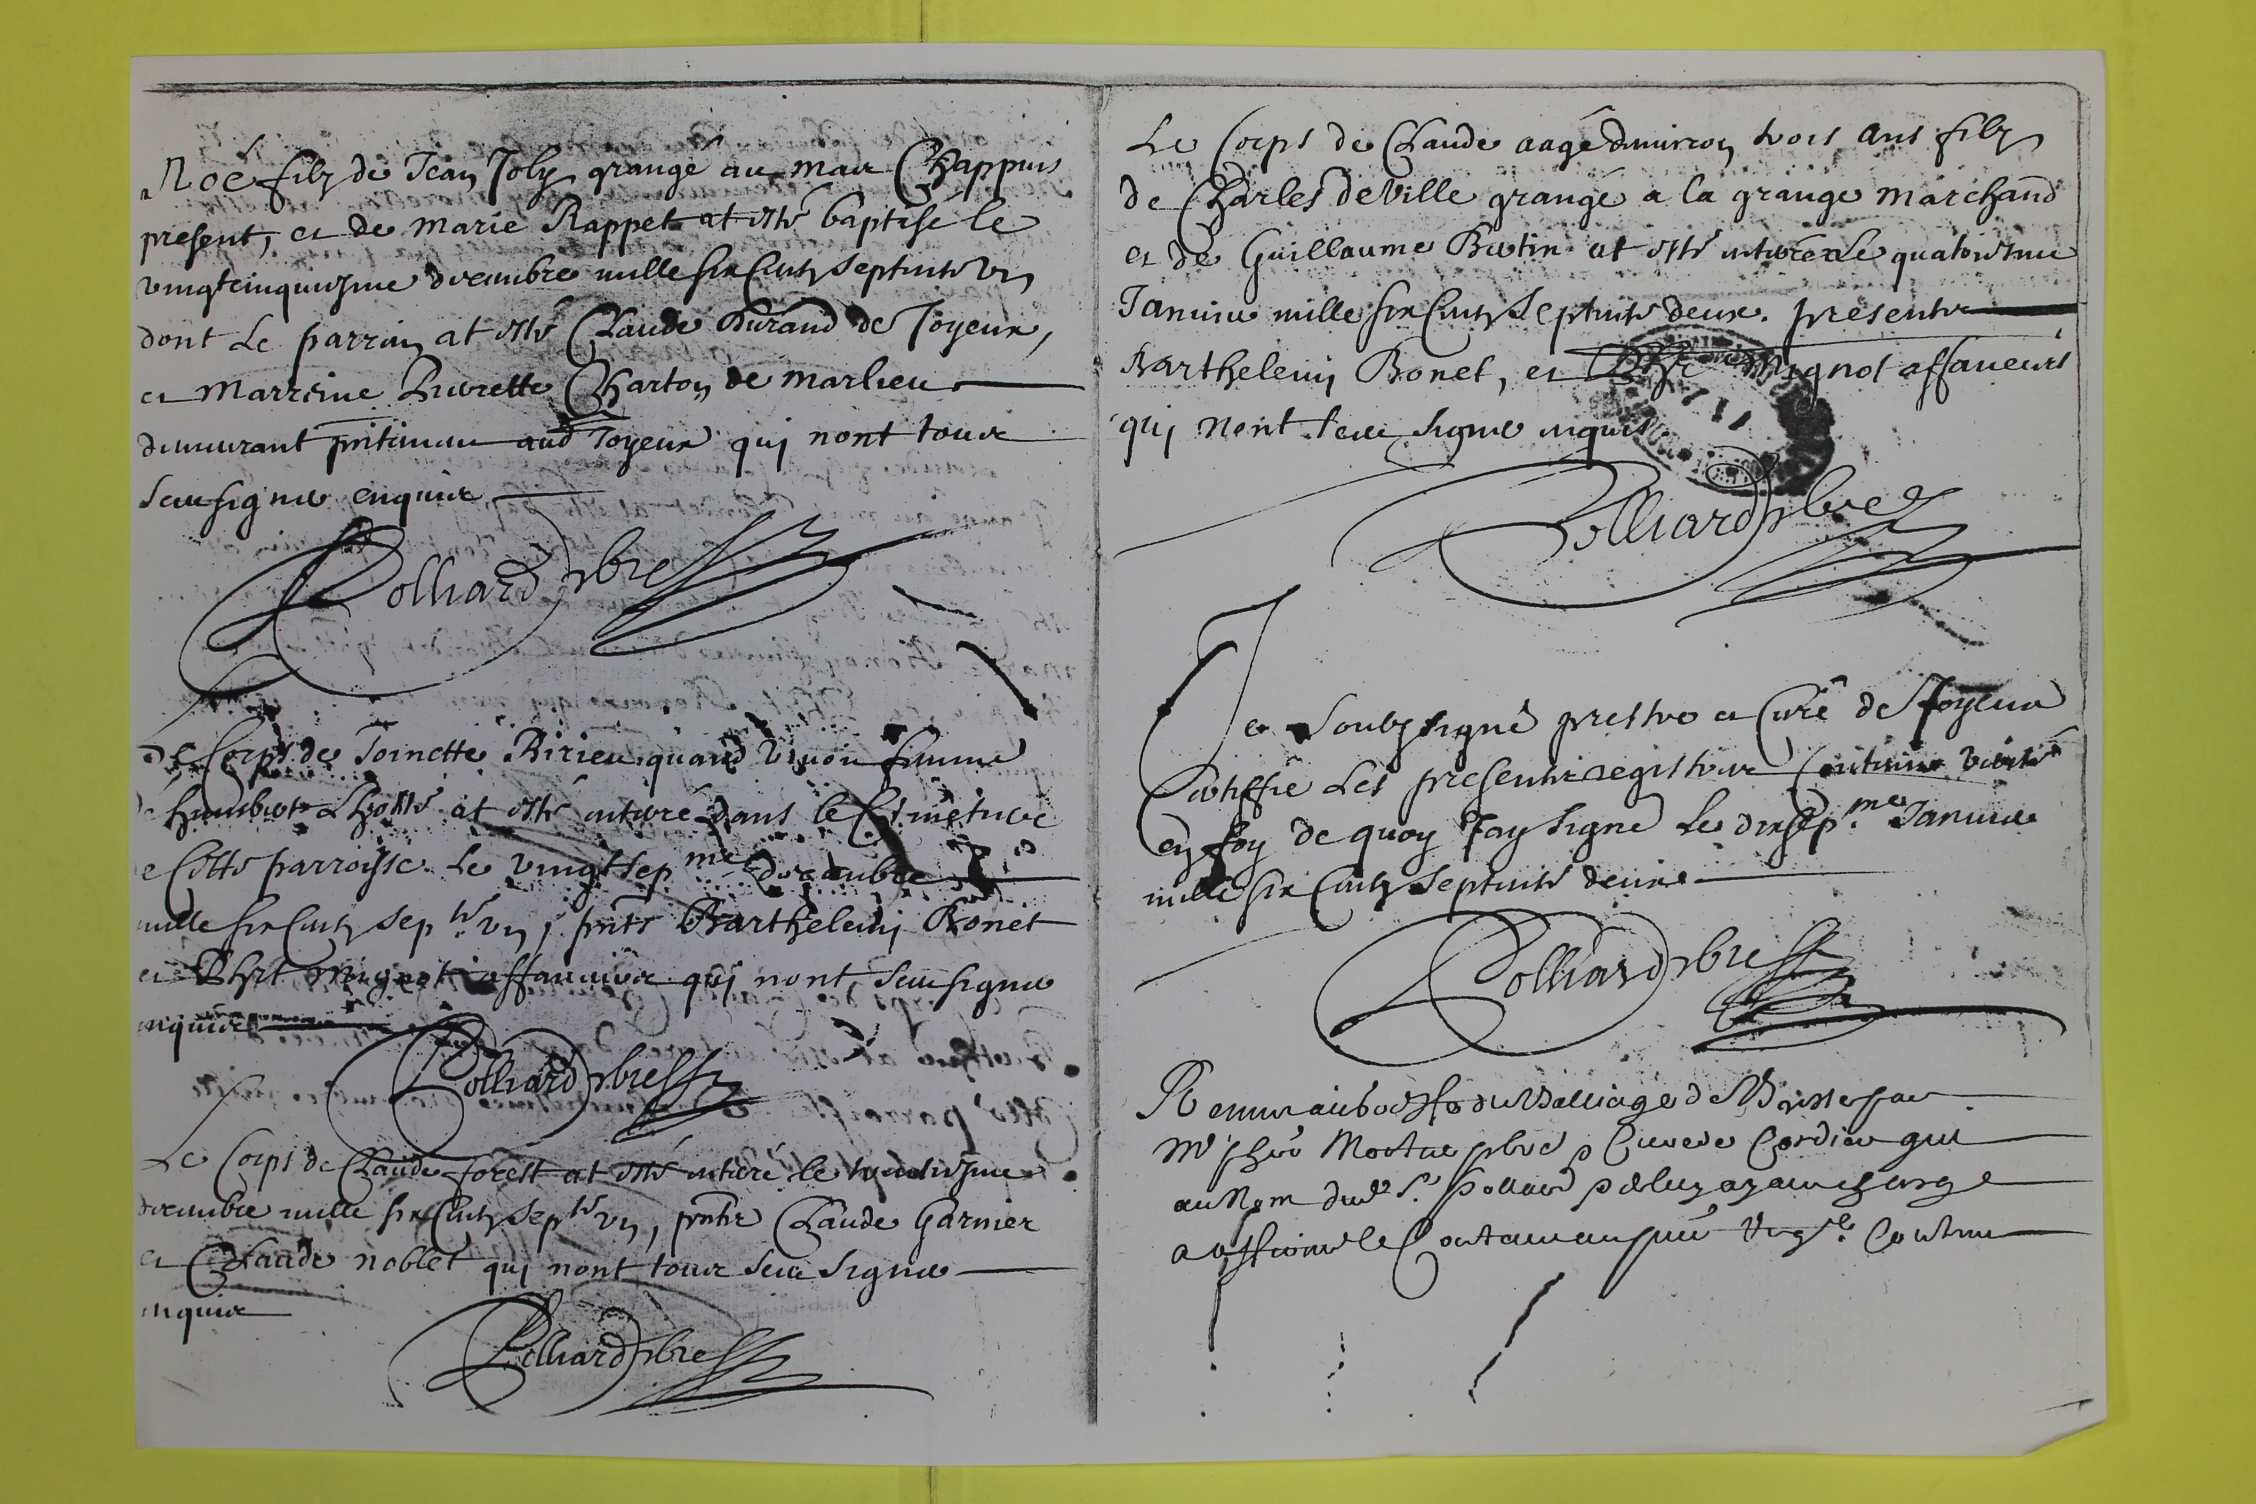 Noé filz de Jean Joly grangé au mas Chappuis
present, et de Marie Rappet at esté baptisé le
vingtcinquiesme decembre mille six centz septante un
dont le parrain at esté Claude Durand de Joyeux,
et marreine Pierrette Charton de marlieu
demeurant audt Joyeux qui nont tous
sceu signer enquis
Rolliard pbre
Le Corps de Toinette Birieu quand vivoit femme
de humbert at esté enterré dans le Cimetiere
de cette parroisse le vingt sepme decembre
mille six centz septte un, pnts Barthelemy Bonet
et Mignot affaneurs qui nont sceu signer
enquis
Rolliard pbre
Le Corps de Claude forest at esté enterré le trentiesme
decembre mille six centz septte un, pnts Claude Garnier
et Claude noblet qui nont tous sceu signer
enquis
Rolliard pbre
Le Corps de Claude aagé d'environ trois ans filz
de Charles deville grangé a la grange Marchand
et de Guillaume Butin at esté enterré le quatorziesme
Janvier mille six centz septante deux. presents
Barthelemy Bonet, et Mignot affaneurs
qui nont sceu signer enquis
Rolliard pbre
Je soubzsigné prestre et curé de Joyeux
Certiffie les presents registres contenir verité
en foy de quoy Jay signé le dixsepme Janvier
mille six centz septante deux
Rolliard pbre
Remis au du Balliage de Bresse par
Mre pbre Curé de Cordieu qui
au Nom dud Sr Rolliard charge
a affirmé le Contenu au pnt Regre